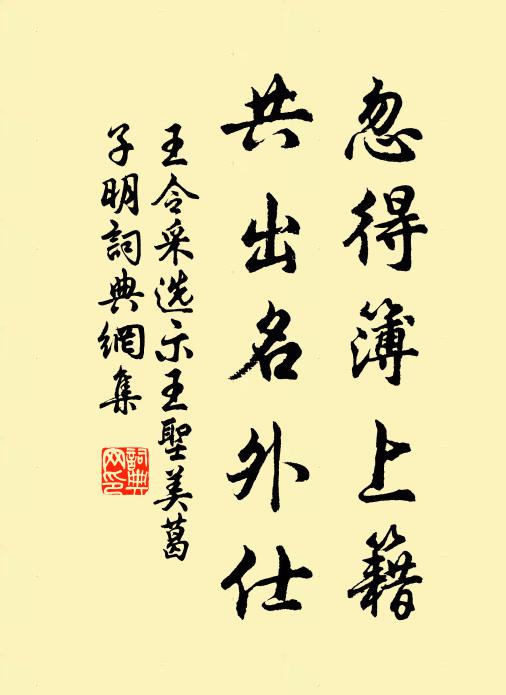 忽得簿上籍
共出名外仕
王令采选示王聖美葛
子明詞典網集
詞典网印